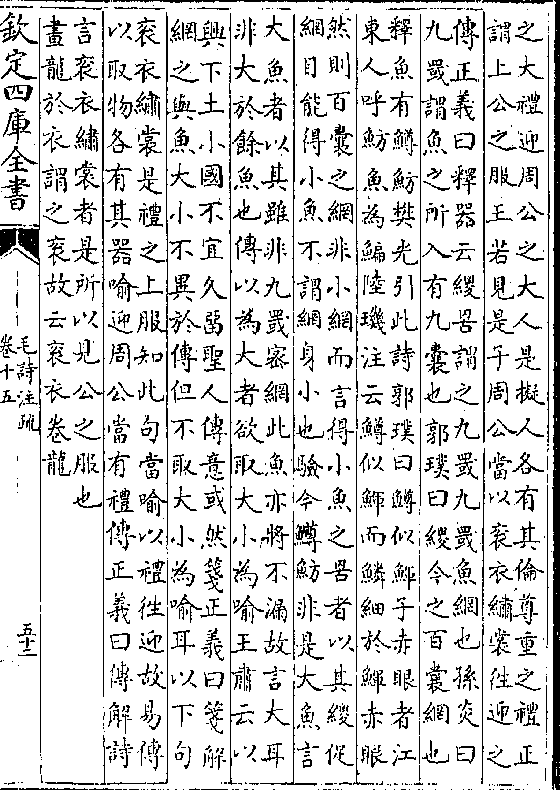 之大禮迎周公之大人是擬人各有其倫尊重之禮正
謂上公之服王若見是子周公當以袞衣繡裳往迎之
傳正義曰釋器云緵罟謂之九罭九罭魚網也孫炎曰
九罭謂魚之所入有九囊也郭璞曰緵今之百囊網也
釋魚有鱒魴樊光引此詩郭璞曰鱒似鯶子赤眼者江
東人呼魴魚為鯿陸璣注云鱒似鯶而鱗細於鯶赤眼
然則百囊之網非小網而言得小魚之罟者以其緵促
網目能得小魚不謂網身小也驗今鱒魴非是大魚言
大魚者以其雖非九罭密網此魚亦將不漏故言大耳
非大於餘魚也傳以為大者欲取大小為喻王肅云以
興下土小國不宜久留聖人傳意或然箋正義曰箋解
網之與魚大小不異於傳但不取大小為喻耳以下句
袞衣繡裳是禮之上服知此句當喻以禮往迎故易傳
以取物各有其器喻迎周公當有禮傳正義曰傳解詩
言袞衣繡裳者是所以見公之服也
畫龍於衣謂之袞故云袞衣卷龍
欽定四庫全書
毛詩注疏
卷十五
五十二